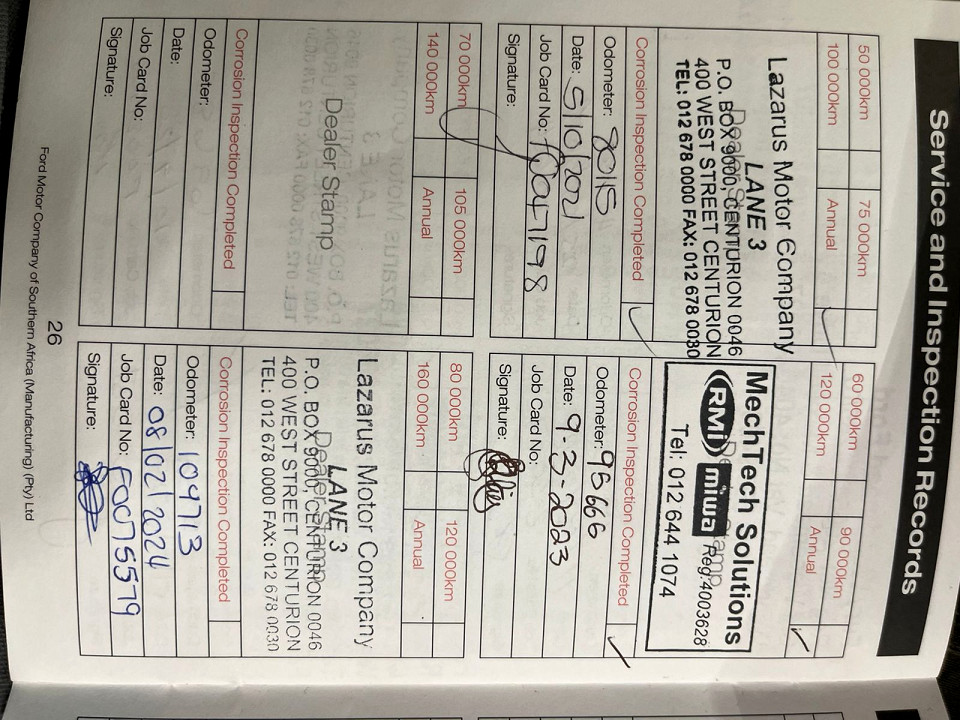 Service and Inspection Records
50 000km 75 000km
100 000km Annual
Lazarus Motor Company
LANE 3
Dealer Stamp
P.O. BOX 9000, CENTURION 0046
400 WEST STREET CENTURION
TEL: 012 678 0000 FAX: 012 678 0030
Corrosion Inspection Completed
Odometer: 80115
Date: 5/10/2021
Job Card No:
Signature:
60 000km 90 000km
120 000km Annual
MechTech Solutions
Dealer Stamp
RMi miwa Reg:4003628
Tel: 012 644 1074
Corrosion Inspection Completed
Odometer: 93666
Date: 9-3-2023
Job Card No:
Signature:
70 000km 105 000km
140 000km Annual
Dealer Stamp
Corrosion Inspection Completed
Odometer:
Date:
Job Card No:
Signature:
80 000km 120 000km
160 000km Annual
Lazarus Motor Company
LANE 3
Dealer Stamp
P.O. BOX 9000, CENTURION 0046
400 WEST STREET CENTURION
TEL: 012 678 0000 FAX: 012 678 0030
Corrosion Inspection Completed
Odometer: 109713
Date: 08/02/2024
Job Card No: F0075579
Signature:
26
Ford Motor Company of Southern Africa (Manufacturing) (Pty) Ltd